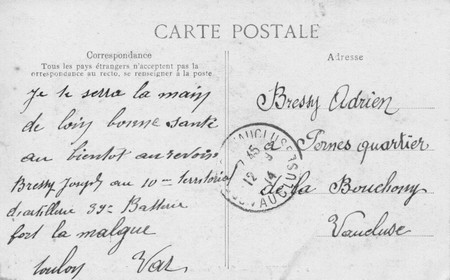 CARTE POSTALE
Correspondance
Tous les pays étrangers n'acceptent pas la
correspondance au recto, se renseigner à la poste
Je te serra la main
de loin bonne santé
au bientot aurevoir
Bressy Joseph au 10me territorial
d'artillerie 39e Batterie
fort la malgue
toulon Var
Adresse
Bressy Adrien
a Pernes quartier
de la Bouchony
Vaucluse
VAUCLUSE
12 14
VAUCLUSE